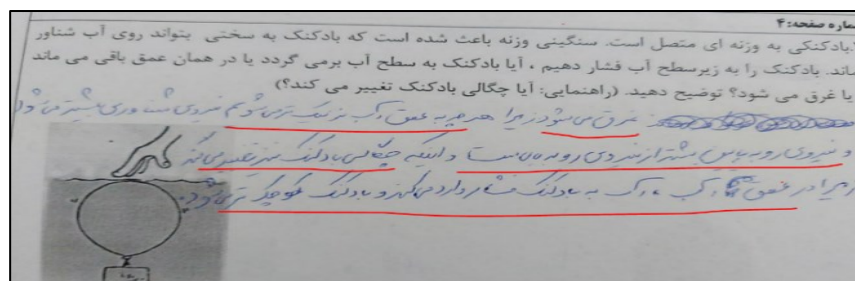 شماره صفحه: ۴
بادکنکی به وزنه ای متصل است. سنگینی وزنه باعث شده است که بادکنک به سختی بتواند روی آب شناور
بماند. بادکنک را به زیرسطح آب فشار دهیم ، آیا بادکنک به سطح آب برمی گردد یا در همان عمق باقی می ماند
یا غرق می شود؟ توضیح دهید. (راهنمایی: آیا چگالی بادکنک تغییر می کند؟)
غرق می شود زیرا هر چه به عمق آب نزدیک تر می شویم نیروی شناوری بیشتر می شود
و نیروی رو به پایین بیشتر از نیروی رو به بالا است و اینکه چگالی بادکنک نیز تغییر می کند
زیرا در عمق آب ، آب به بادکنک فشار وارد می کند و بادکنک کوچک تر می شود.
وزنه